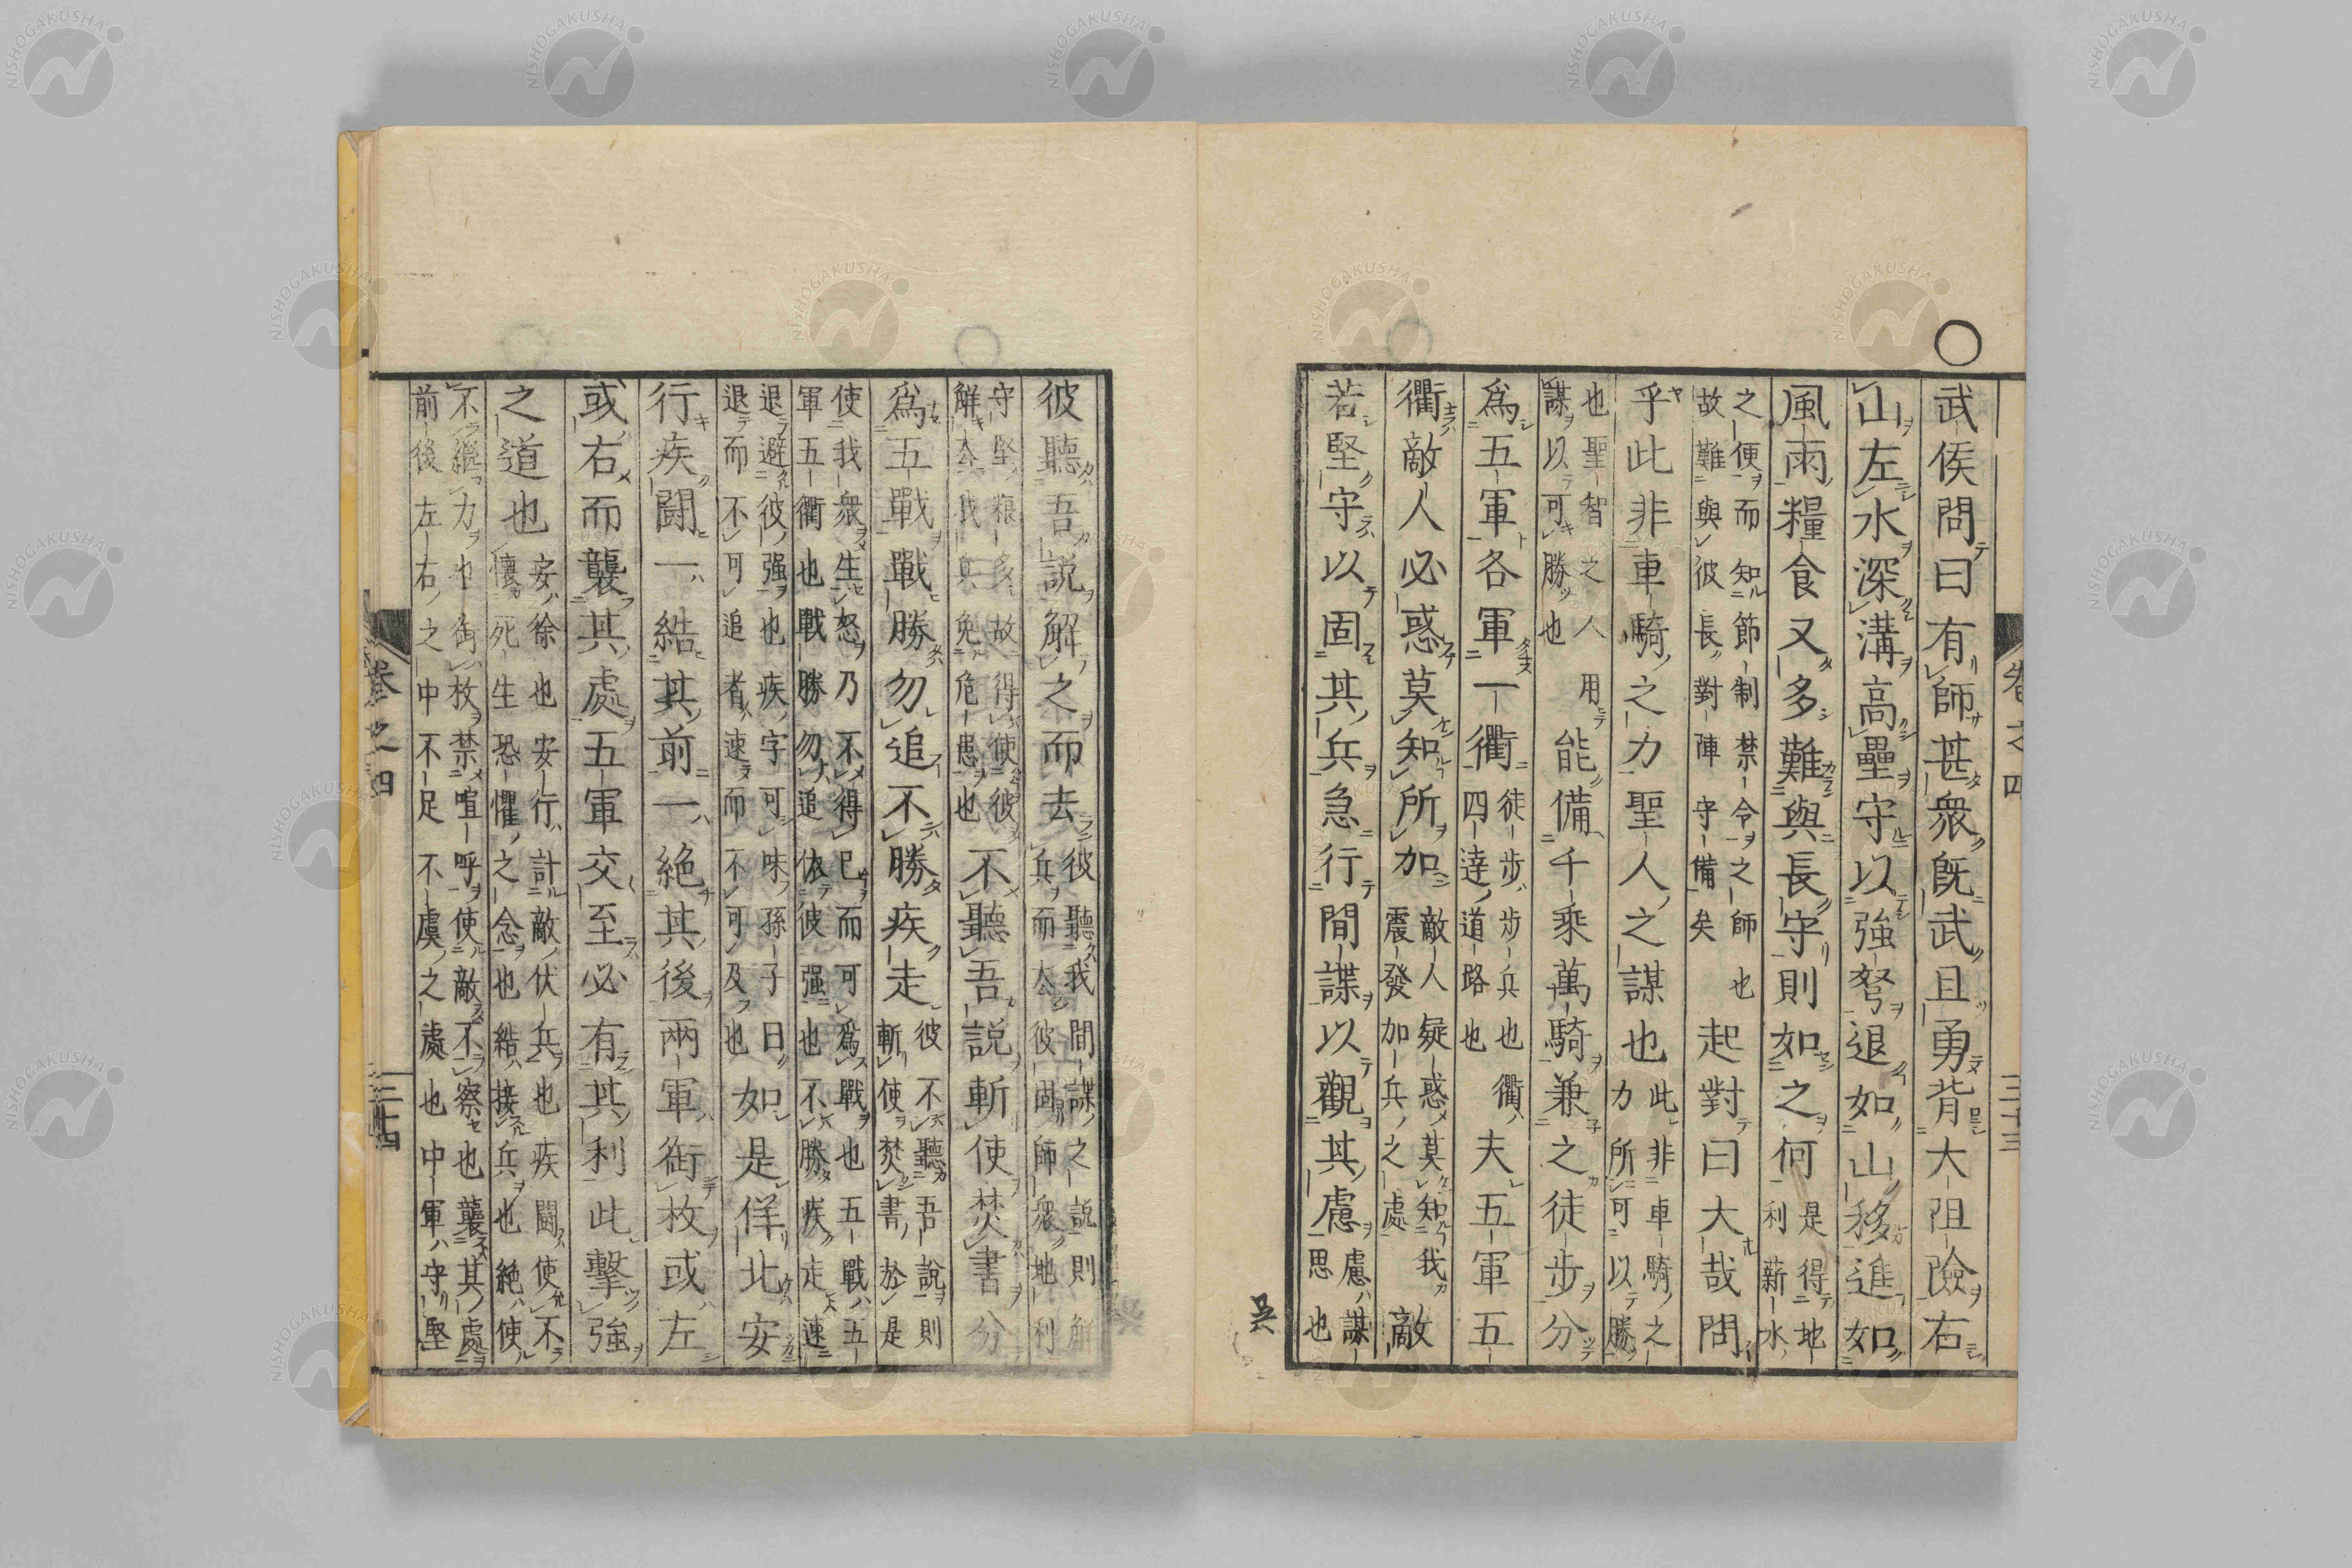 ○
武侯問曰有師甚衆旣武且勇背大阻險右
山左水深溝高壘守以強弩退如山移進如
風雨糧食又多難與長守則如之何是得地利薪水
之便而知節制禁令之師也
故難與彼長對陣守備矣
起對曰大哉問
乎此非車騎之力聖人之謀也此非車騎之力所可以勝
也聖智之人
謀以可勝也
用能備千乘萬騎兼之徒步分
爲五軍各軍一衢徒步步兵也衢四達道路也夫五軍五
衢敵人必惑莫知所加敵人疑惑莫知我震發加兵之處敵
若堅守以固其兵急行間諜以觀其慮慮謀思也
彼聽吾說解之而去彼聽我間諜之說則解兵而去彼固師衆地利
守堅粮多故得使彼
解去我兵免危患也
不聽吾說斬使焚書分
爲五戰戰勝勿追不勝疾走彼不聽吾說則斬使焚書於是
使我衆生怒乃不得已而可爲戰也五戰五
軍五衢也戰勝勿追依彼强也不勝疾走速
退避彼强也疾字可味孫子曰
退而不可追者速而不可及也
如是佯北安
行疾鬪一結其前一絶其後兩軍銜枚或左
或右而襲其處五軍交至必有其利此擊強
之道也安徐也安行計敵伏兵也疾鬪使不
懷死生恐懼之念也結接兵也絶使
不繼力也銜枚禁喧呼使敵不察也襲其處
前後左右之中不足不虞之處也中軍守堅
卷之四
三十三
卷之四
三十四
吳
NISHOGAKUSHA